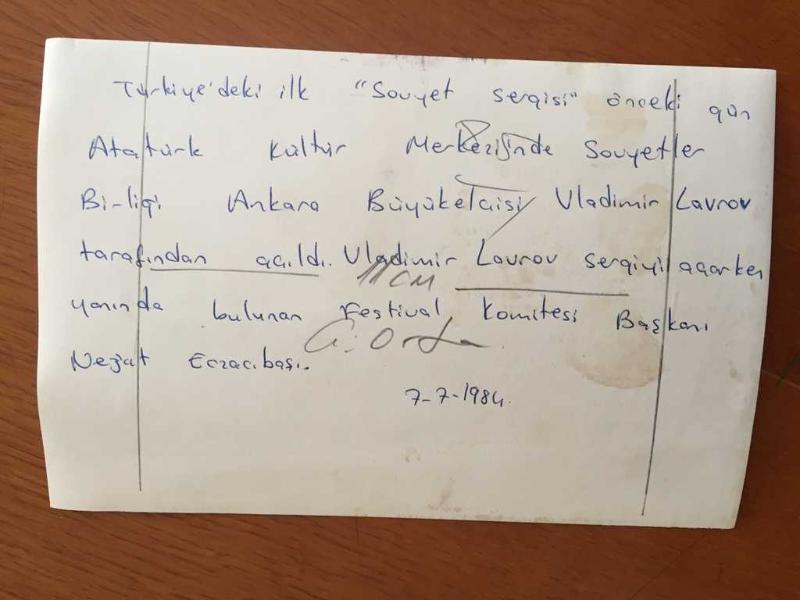 Türkiye'deki ilk "Sovyet sergisi" önceki gün
Atatürk Kültür Merkezi'nde Sovyetler
Birliği Ankara Büyükelçisi Vladimir Lavrov
tarafından açıldı. Vladimir Lavrov sergiyi açarken
11 CM
yanında bulunan Festival Komitesi Başkanı
Nejat Eczacıbaşı.
7-7-1984.